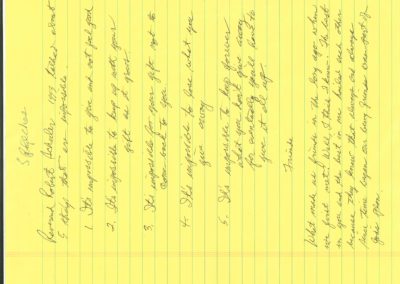 Speeches
Reverend Robert Schuller 1993 talked about
5 things that are impossible.
1. It's impossible to give and not feel good
2. It's impossible to keep up with your
gift as it grows
3. It's impossible for your gift not to
come back to you.
4. It's impossible to lose what you
give away
5. It's impossible to keep forever
what you don't give away
for eventually you'll have to
give it all up
Friends
What made us friends in the long ago when
we first met? Well, I think I know: The best
in me and the best in you hailed each other
because they knew that always and always
since time began our being friends was part of
God's plan.